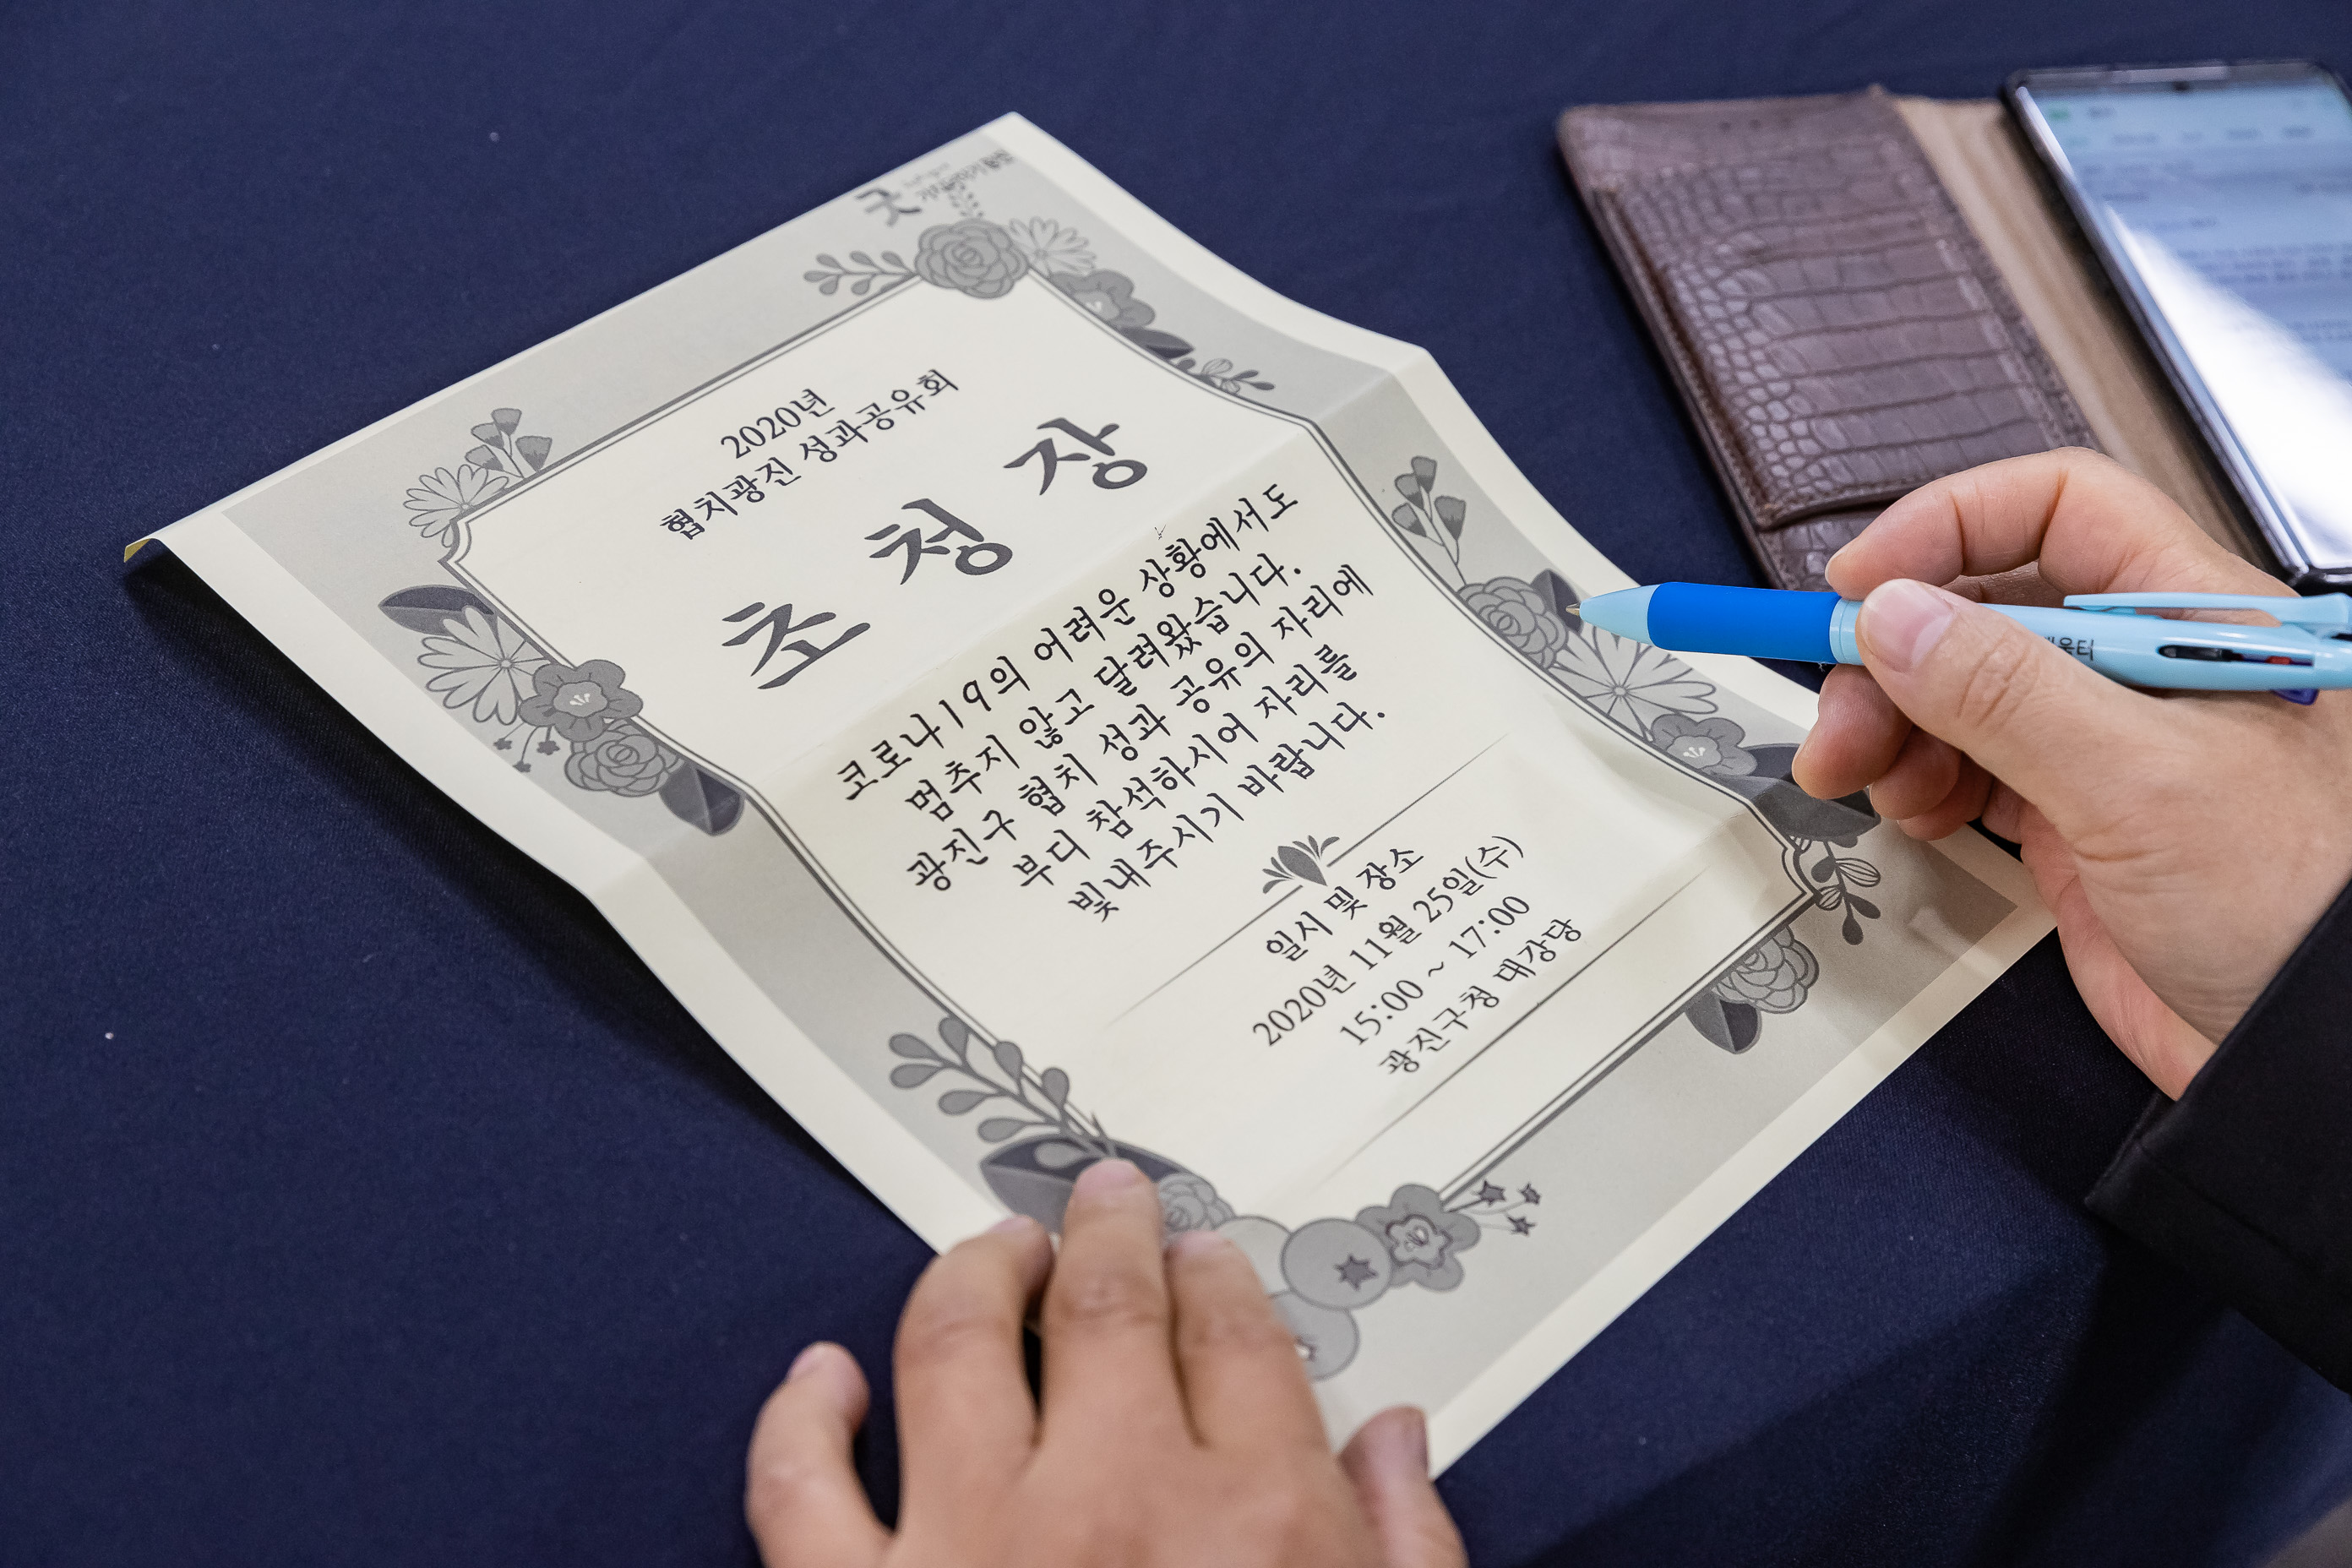 굿
2020년
협치광진 성과공유회
초청장
코로나19의 어려운 상황에서도
멈추지 않고 달려왔습니다.
광진구 협치 성과 공유의 자리에
부디 참석하시어 자리를
빛내주시기 바랍니다.
일시 및 장소
2020년 11월 25일(수)
15:00 ~ 17:00
광진구청 대강당